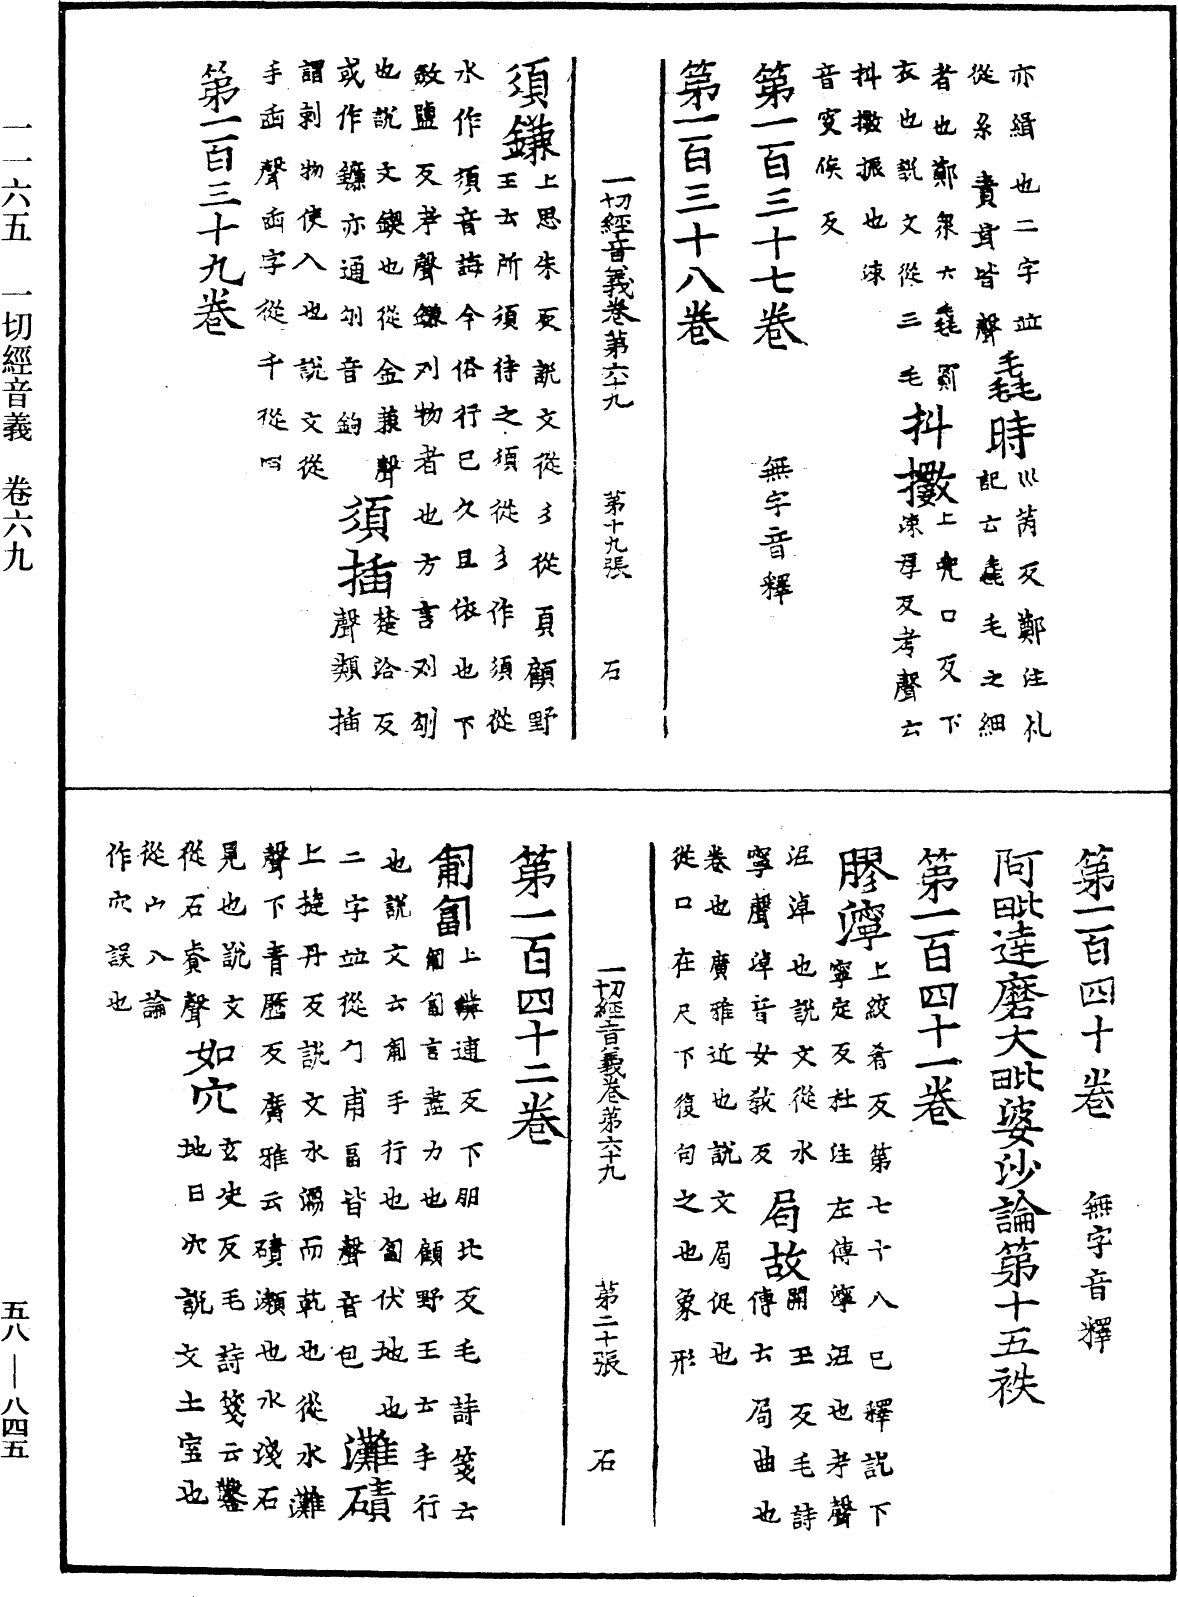 一一六五　一切經音義　卷六九
亦緝也二字並
從糸責貟皆聲
毳時
川芮反鄭注礼
記云毳毛之細
者也鄭衆六毳罽
衣也說文從三毛
抖擻
上兜口反下
涑厚反考聲云
抖擻振也涑
音叜侯反
第一百三十七卷　無字音釋
第一百三十八卷
一切經音義卷第六十九　第十九張　石
須鎌
上思朱反說文從彡從頁顧野
王云所須待之須從彡作須從
水作湏音誨今俗行已久且依也下
斂鹽反考聲鎌刈物者也方言刈刎
也說文鍥也從金兼聲
或作鐮亦通刎音鉤
須插
楚洽反
聲類插
謂剌物使入也說文從
手臿聲臿字從千從臼
第一百三十九卷
第一百四十卷　無字音釋
阿毗達磨大毗婆沙論第十五袟
第一百四十一卷
膠濘
上絞肴反第七十八已釋訖下
寧定反杜注左傳濘泥也考聲
泥淖也說文從水
寧聲淖音女敎反
局故
開玉反毛詩
傳云局曲也
卷也廣雅近也說文局促也
從口在尺下復句之也象形
一切經音義卷第六十九　第二十張　石
第一百四十二卷
匍匐
上蒱逋反下朋北反毛詩箋云
匍匐言盡力也顧野王云手行
也說文云匍手行也匐伏地也
二字並從勹甫畐皆聲音包
灘磧
上擔丹反說文水濡而乾也從水灘
聲下青歷反廣雅云磧瀨也水淺石
見也說文
從石責聲
如穴
玄決反毛詩箋云鑿
地曰穴說文土室也
從宀八論
作穴誤也
五八—八四五